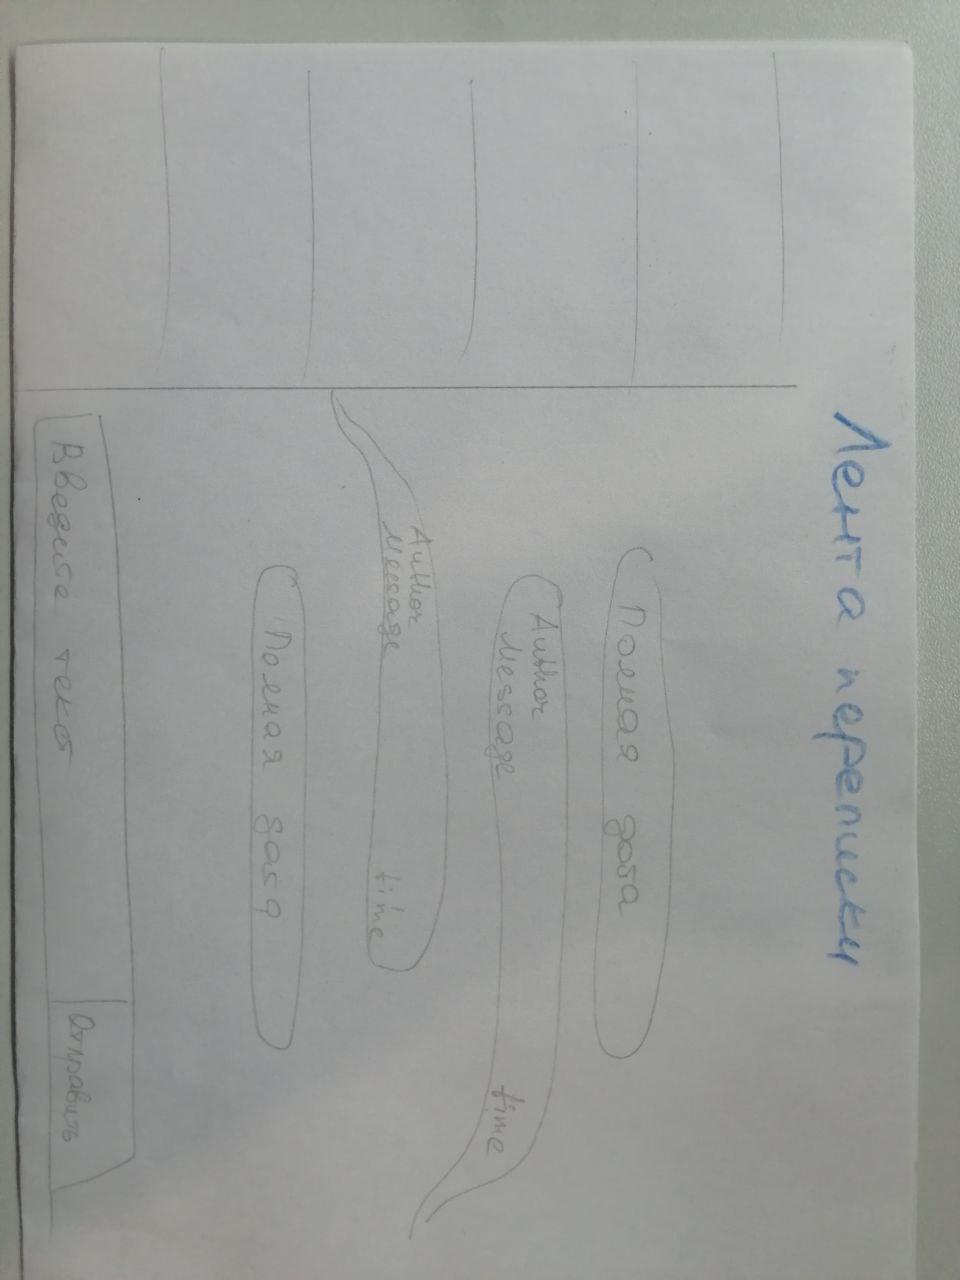 Лента переписки
Полная дата
Author
Message
time
Author
Message
time
Полная дата
Введите текст
Отправить